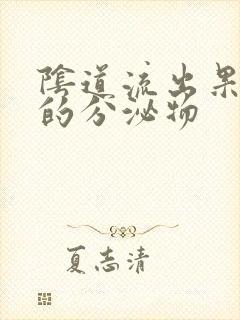 陰道流出果
的分泌物
夏志清